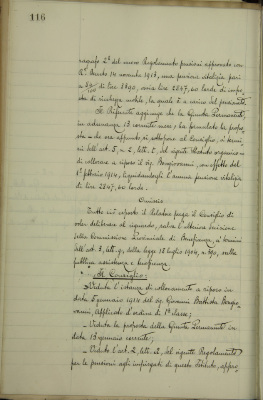 116
ragrafo 2° del nuovo Regolamento pensioni approvato con
R.° Decreto 14 novembre 1913, una pensione vitalizia pari
a di lire 3890, ossia lire 2347,60 lorde di impo-
sta di ricchezza mobile, la quale è a carico del pensionato.
Il Referente aggiunge che la Giunta Permanente,
in adunanza 13 corrente mese, ha formulato la propo-
sta da ora apposta in adozione al Consiglio, ai termi-
ni dell'art. 5, n. 2, lett. C, del vigente Modulo organico
di collocare a riposo il sig. Bongiovanni, con effetto dal
1° febbraio 1914, liquidandogli l'annua pensione vitalizia
di lire 2347,60 lorde.
Omissis
Tutto ciò esposto il Relatore prega il Consiglio di
voler deliberare al riguardo, salva l'ulteriore sanzione
della Commissione Provinciale di Beneficenza, a termini
dell'art. 3, lett. g, della legge 18 luglio 1904, n. 390, sulla
pubblica assistenza e beneficenza
Il Consiglio:
Veduta l'istanza di collocamento a riposo in
data 5 gennaio 1914 del sig. Giovanni Battista Bongio-
vanni Applicato d'ordine di 1ª classe;
Veduta la proposta della Giunta Permanente in
data 13 gennaio corrente;
Veduto l'art. 2, lett. a, del vigente Regolamento
per le pensioni agli impiegati di questo Istituto, appro-